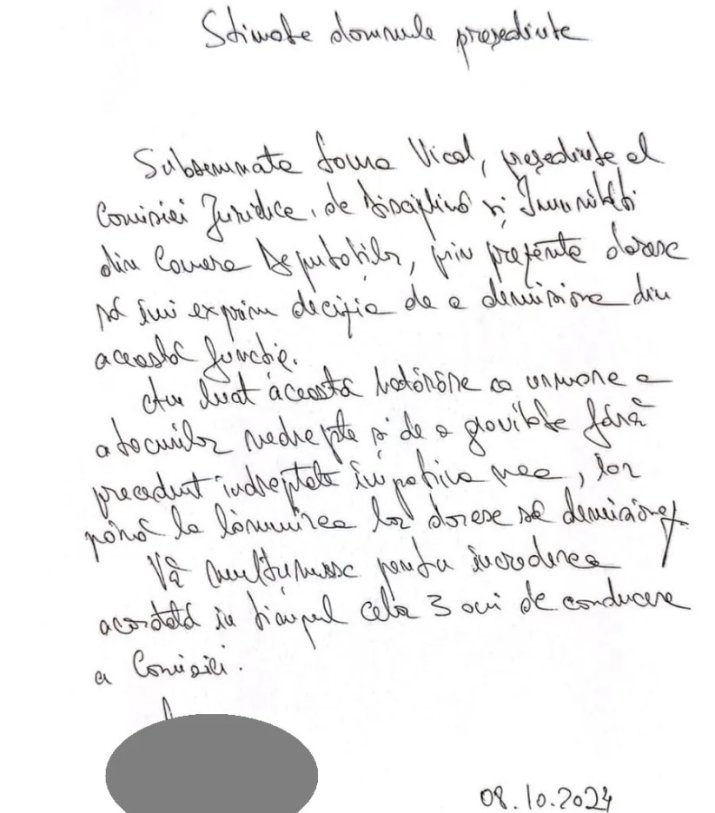 Stimate domnule președinte
Subsemnata Laura Vicol, președinte al
Comisiei Juridice, de Disciplină și Imunități
din Camera Deputaților, prin prezenta doresc
să îmi exprim decizia de a demisiona din
această funcție.
Am luat această hotărâre ca urmare a
atacurilor nedrepte și de o gravitate fără
precedent îndreptate împotriva mea, iar
până la lămurirea lor doresc să demisionez
Vă mulțumesc pentru încrederea
acordată în timpul celor 3 ani de conducere
a Comisiei.
08.10.2024